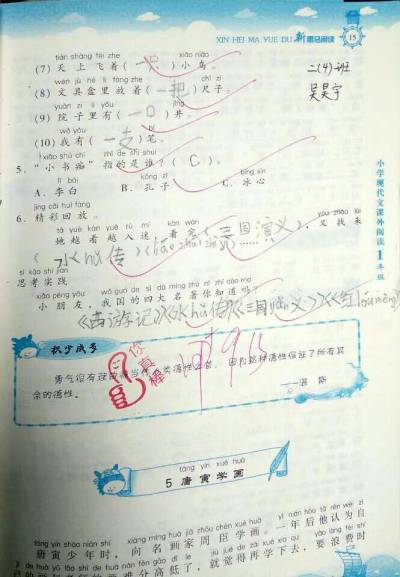 XIN HEI MA YUE DU 新黑马阅读 15
tiān shàng fēi zhe xiǎo niǎo
(7) 天上飞着(一只)小鸟。
wén jù hé lǐ fàng zhe chǐ zi
(8) 文具盒里放着(一把)尺子。
二(4)班
吴昊宇
yuàn zi lǐ yǒu jǐng
(9) 院子里有(一口)井。
wǒ yǒu bǐ
(10) 我有(一支)笔。
xiǎo shū chī zhǐ de shì shuí
5. “小书痴”指的是谁?( C )。
lǐ bái kǒng zǐ bīng xīn
A. 李白 B. 孔子 C. 冰心
jīng cǎi huí fàng
6. 精彩回放。
tā yuè kàn yuè rù mí kàn wán yòu zhǎo lái
她越看越入迷,看完《三国演义》,又找来
《水hǔ传》《liáo zhāi zhì yì》……
sī kǎo shí jiàn
思考实践
xiǎo péng yǒu wǒ guó de sì dà míng zhù nǐ zhī dào ma
小朋友,我国的四大名著你知道吗?
《西游记》《水hǔ传》《三国yǎn义》《红lóu mèng》
积少成多
你真棒
勇气很有理由被当作人类德性之首,因为这种德性保证了所有其
余的德性。
táng yín xué huà
5 唐寅学画
táng yín shào nián shí xiàng míng huà jiā zhōu chén xué huà yì nián hòu tā rèn wéi zì
唐寅少年时,向名画家周臣学画。一年后他认为自
难分高低了,就觉得再学下去,要浪费时
小学现代文课外阅读1年级